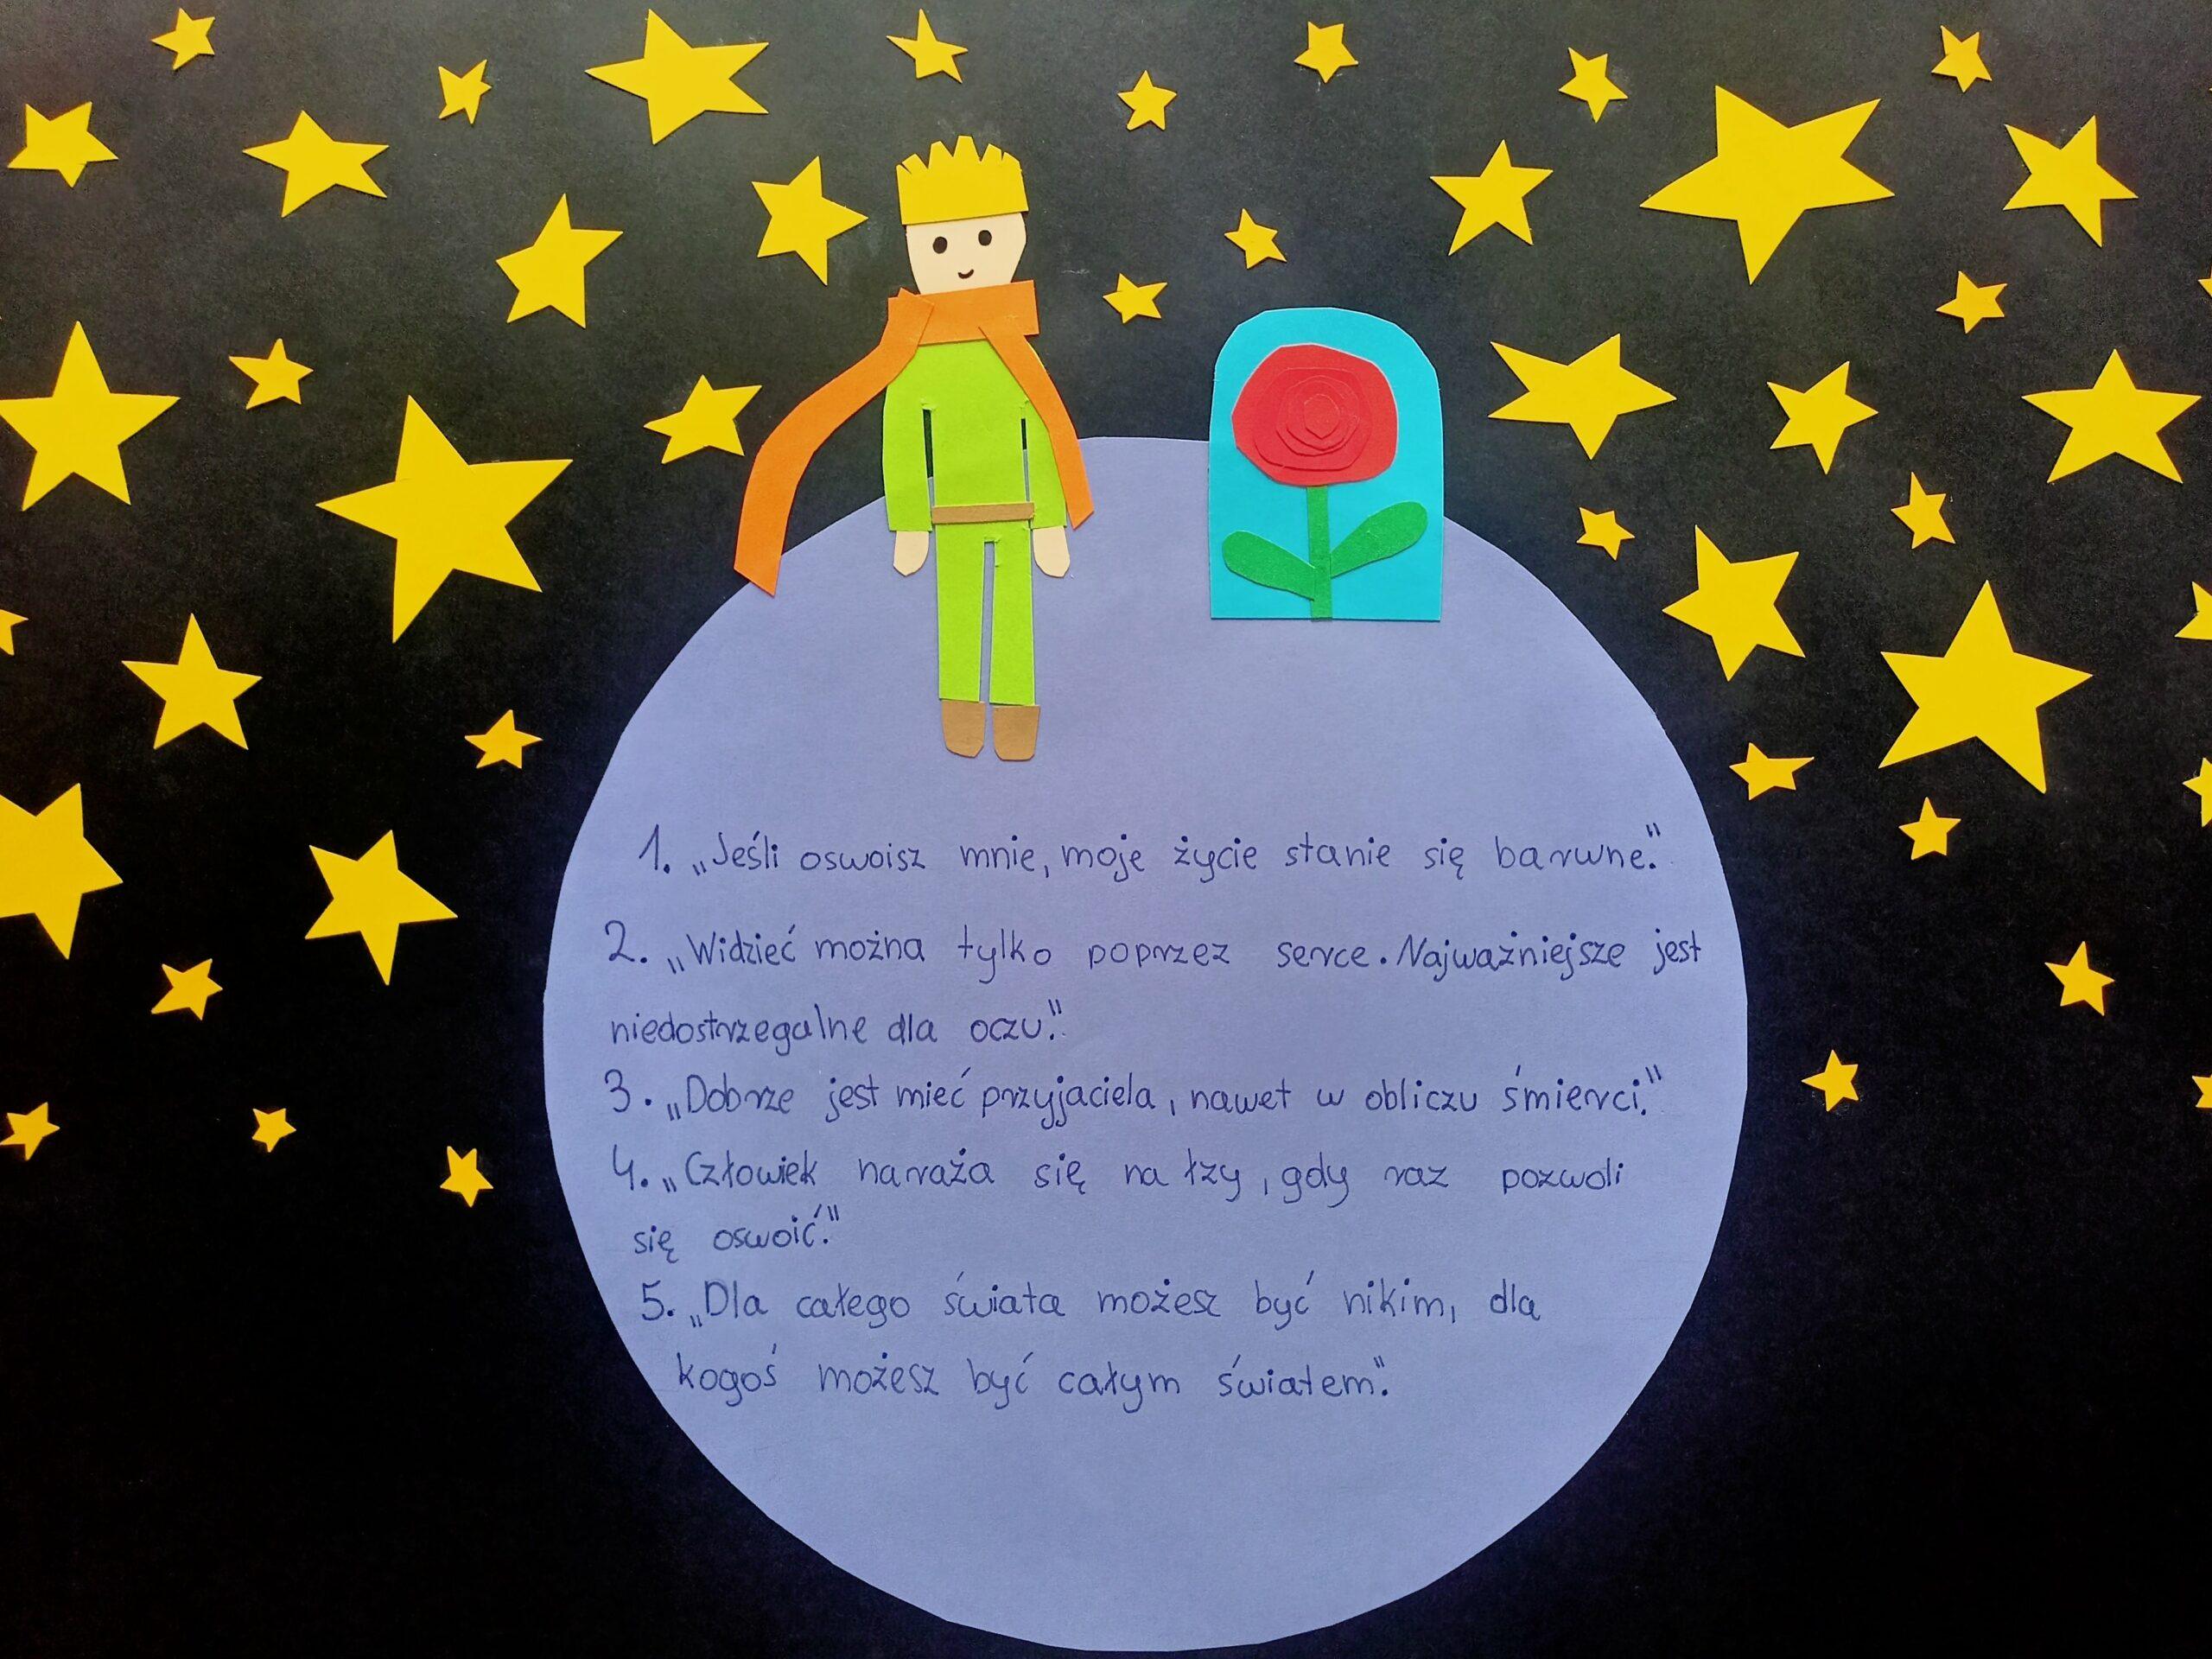 1. „Jeśli oswoisz mnie, moje życie stanie się barwne."
2. „Widzieć można tylko poprzez serce. Najważniejsze jest
niedostrzegalne dla oczu."
3. „Dobrze jest mieć przyjaciela, nawet w obliczu śmierci."
4. „Człowiek naraża się na łzy, gdy raz pozwoli
się oswoić."
5. „Dla całego świata możesz być nikim, dla
kogoś możesz być całym światem."